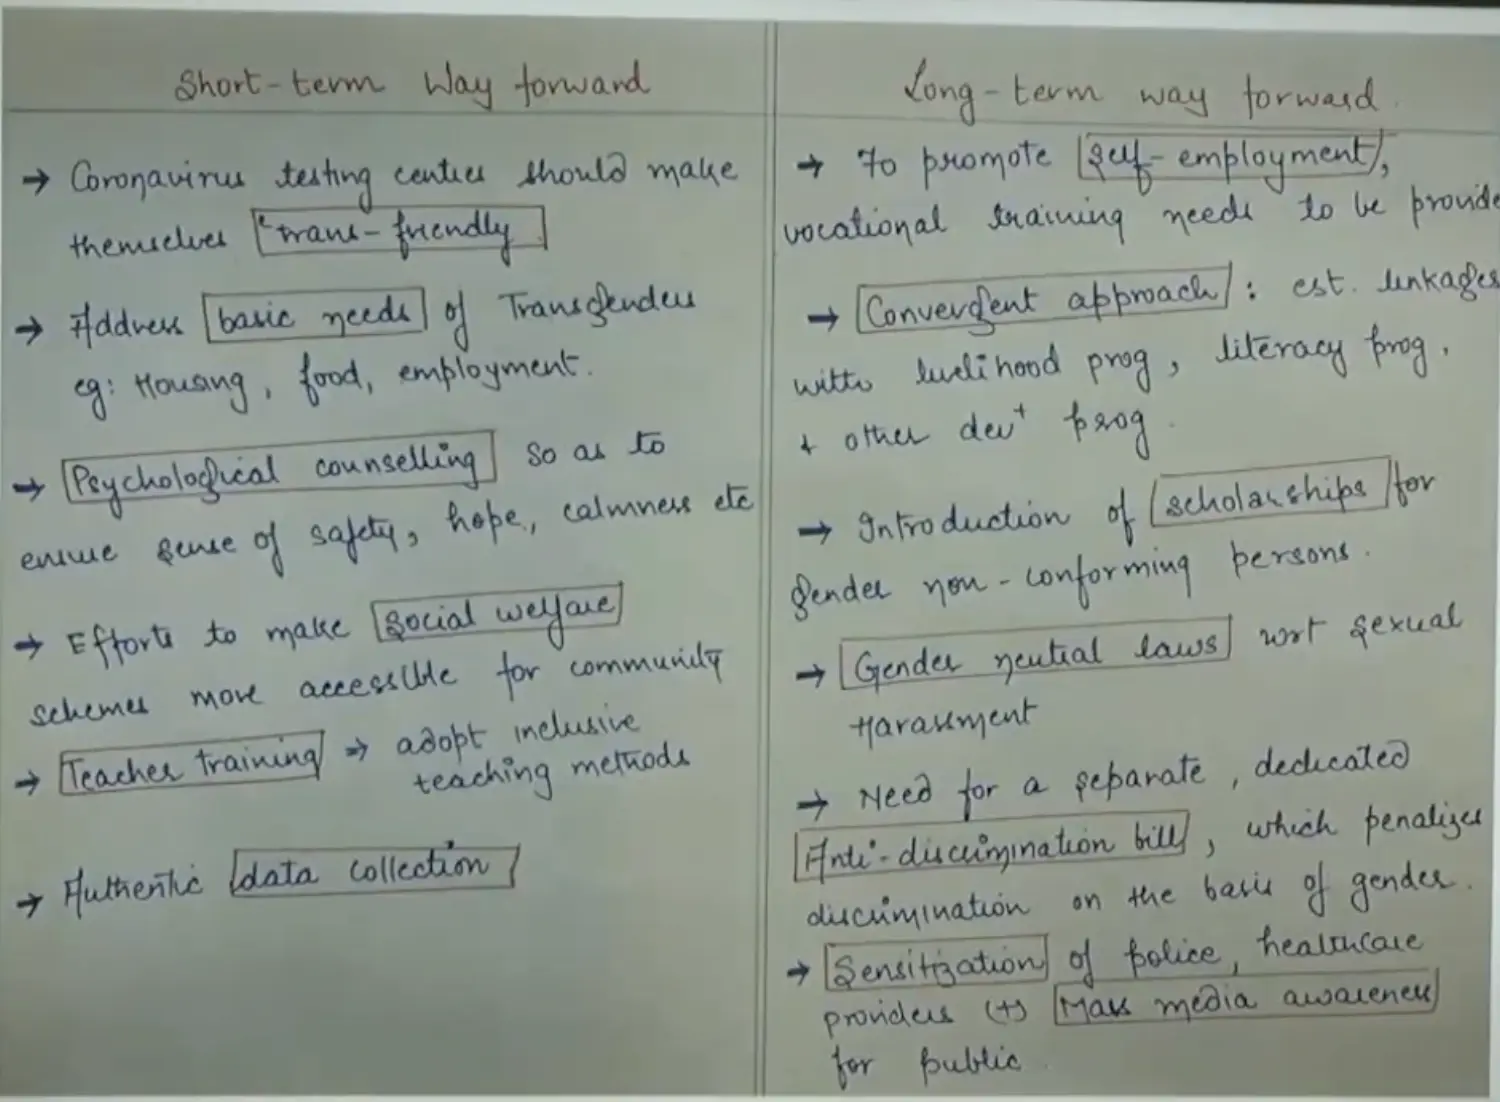 Short-term Way forward
→ Coronavirus testing centres should make
themselves 'trans-friendly
→ Address basic needs of Transgenders
eg: Housing, food, employment.
→ Psychological counselling so as to
ensure sense of safety, hope, calmness etc
→ Efforts to make social welfare
schemes more accessible for community
→ Teacher training ⇒ adopt inclusive
teaching methods
→ Authentic data collection
Long-term way forward.
→ To promote self-employment,
vocational training needs to be provide
→ Convergent approach: est. linkages
with livelihood prog, literacy prog,
+ other devt prog.
→ Introduction of scholarships for
gender non-conforming persons.
→ Gender neutral laws wrt sexual
Harassment
→ Need for a separate, dedicated
Anti-discrimination bill, which penalizes
discrimination on the basis of gender.
→ Sensitization of police, healthcare
providers (+) Mass media awareness
for public.